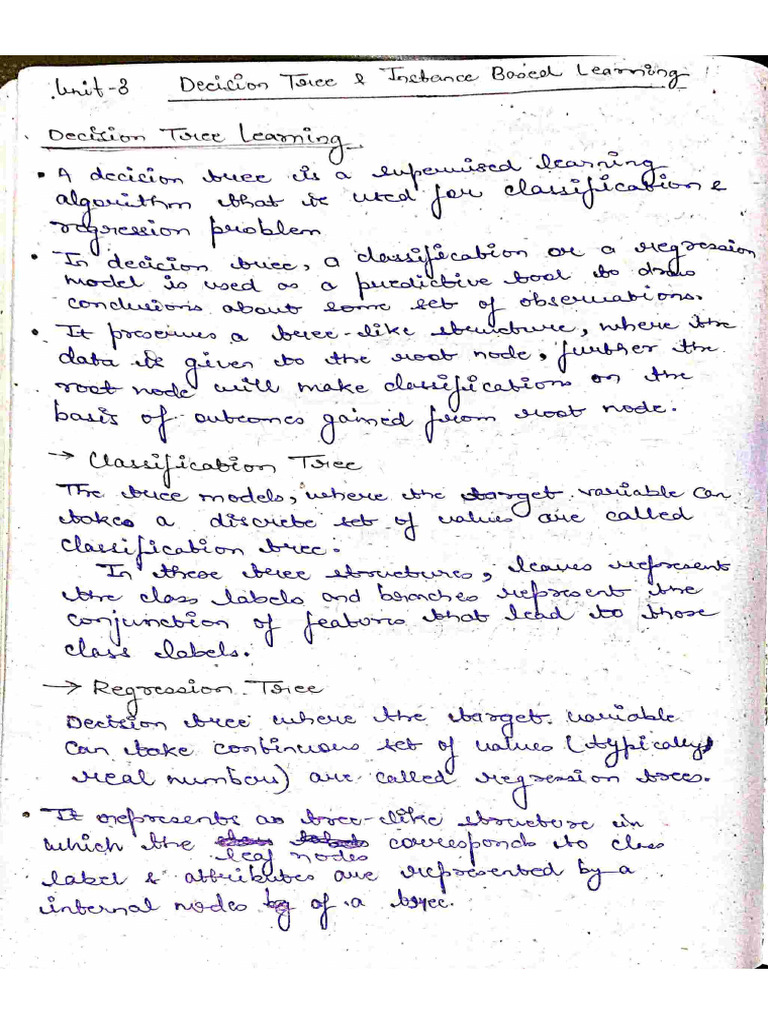 Unit-3 Decision Tree & Instance Based Learning
Decision Tree Learning
• A decision tree is a supervised learning
algorithm that is used for classification &
regression problem
• In decision tree, a classification or a regression
model is used as a predictive tool to draw
conclusions about some set of observations.
• It preserves a tree-like structure, where the
data is given to the root node, further the
root node will make classifications on the
basis of outcomes gained from root node.
→ Classification Tree
The tree models, where the target variable can
take a discrete set of values are called
classification tree.
In these tree structures, leaves represent
the class labels and branches represent the
conjunction of features that lead to those
class labels.
→ Regression Tree
Decision tree where the target variable
can take continuous set of values (typically
real number) are called regression trees.
• It represents as tree-like structure in
which the corresponds to class
leaf nodes
label & attributes are represented by a
internal nodes of a tree.